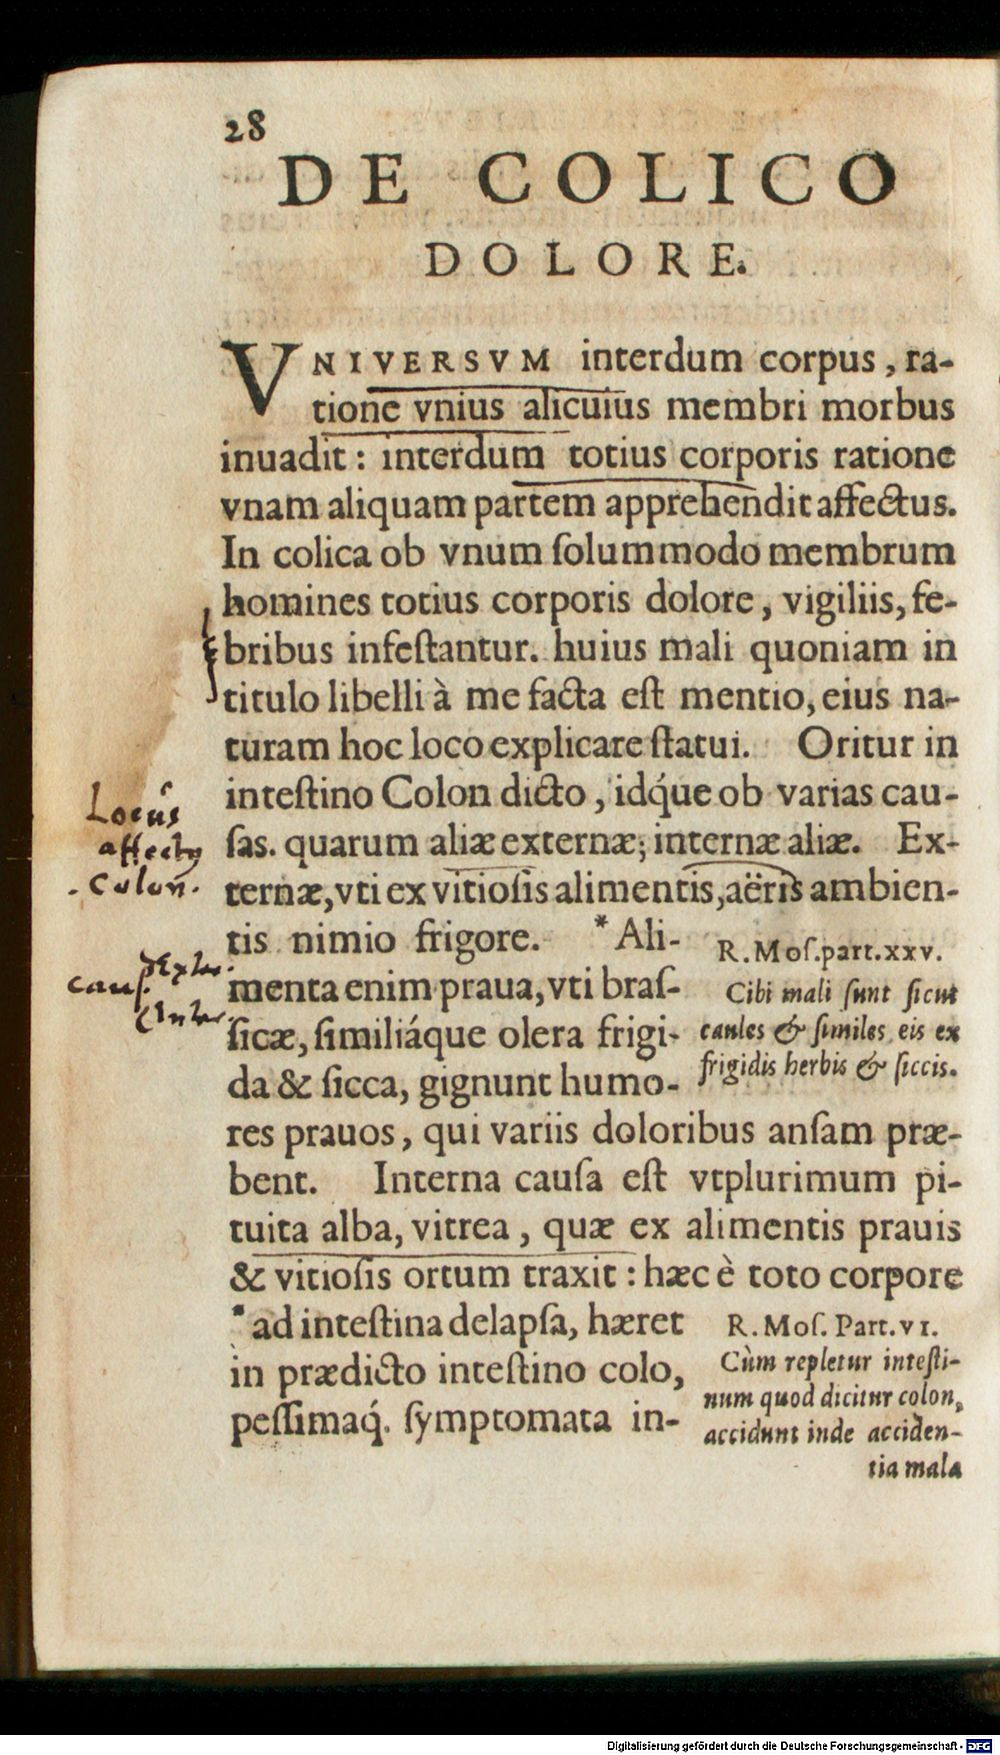 28
DE COLICO
DOLORE.
VNIVERSVM interdum corpus, ra-
tione vnius alicuius membri morbus
inuadit: interdum totius corporis ratione
vnam aliquam partem apprehendit affectus.
In colica ob vnum ſolummodo membrum
homines totius corporis dolore, vigiliis, fe-
bribus infeſtantur. huius mali quoniam in
titulo libelli à me facta eſt mentio, eius na-
turam hoc loco explicare ſtatui. Oritur in
inteſtino Colon dicto, idq́ue ob varias cau-
ſas. quarum aliæ externæ; internæ aliæ. Ex-
ternæ, vti ex vitioſis alimentis, aëris ambien-
tis nimio frigore. *Ali-
menta enim praua, vti braſ-
ſicæ, ſimiliáque olera frigi-
da & ſicca, gignunt humo-
res prauos, qui variis doloribus anſam præ-
bent. Interna cauſa eſt vtplurimum pi-
tuita alba, vitrea, quæ ex alimentis prauis
& vitioſis ortum traxit: hæc è toto corpore
*ad inteſtina delapſa, hæret
in prædicto inteſtino colo,
peſſimaq́. ſymptomata in-
R. Moſ. part. xxv.
Cibi mali ſunt ſicut
caules & ſimiles eis ex
frigidis herbis & ſiccis.
R. Moſ. Part. vi.
Cùm repletur inteſti-
num quod dicitur colon,
accidunt inde acciden-
tia mala
Locus
affectꝰ
Colon.
cauſ.
Exter.
Inter.
Digitalisierung gefördert durch die Deutsche Forschungsgemeinschaft - DFG